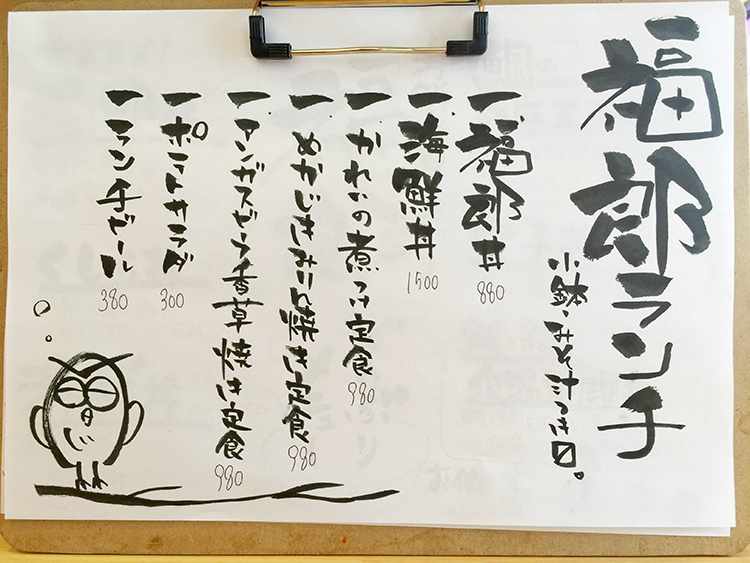 福郎ランチ
小鉢、みそ汁つき。
一 福郎丼 880
一 海鮮丼 1500
一 かれいの煮つけ定食 980
一 めかじきみりん焼き定食 980
一 アンガスビーフ香草焼き定食 980
一 ポテトサラダ 300
一 ランチビール 380